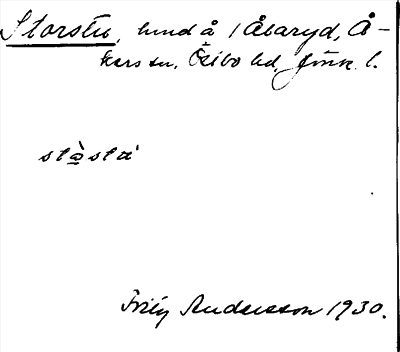 Storsta, hund å /Åbaryd, Å-
kers sn, Östbo hd, Jönk. l.
stɑ̀sta'
Frity Andersson 1930.